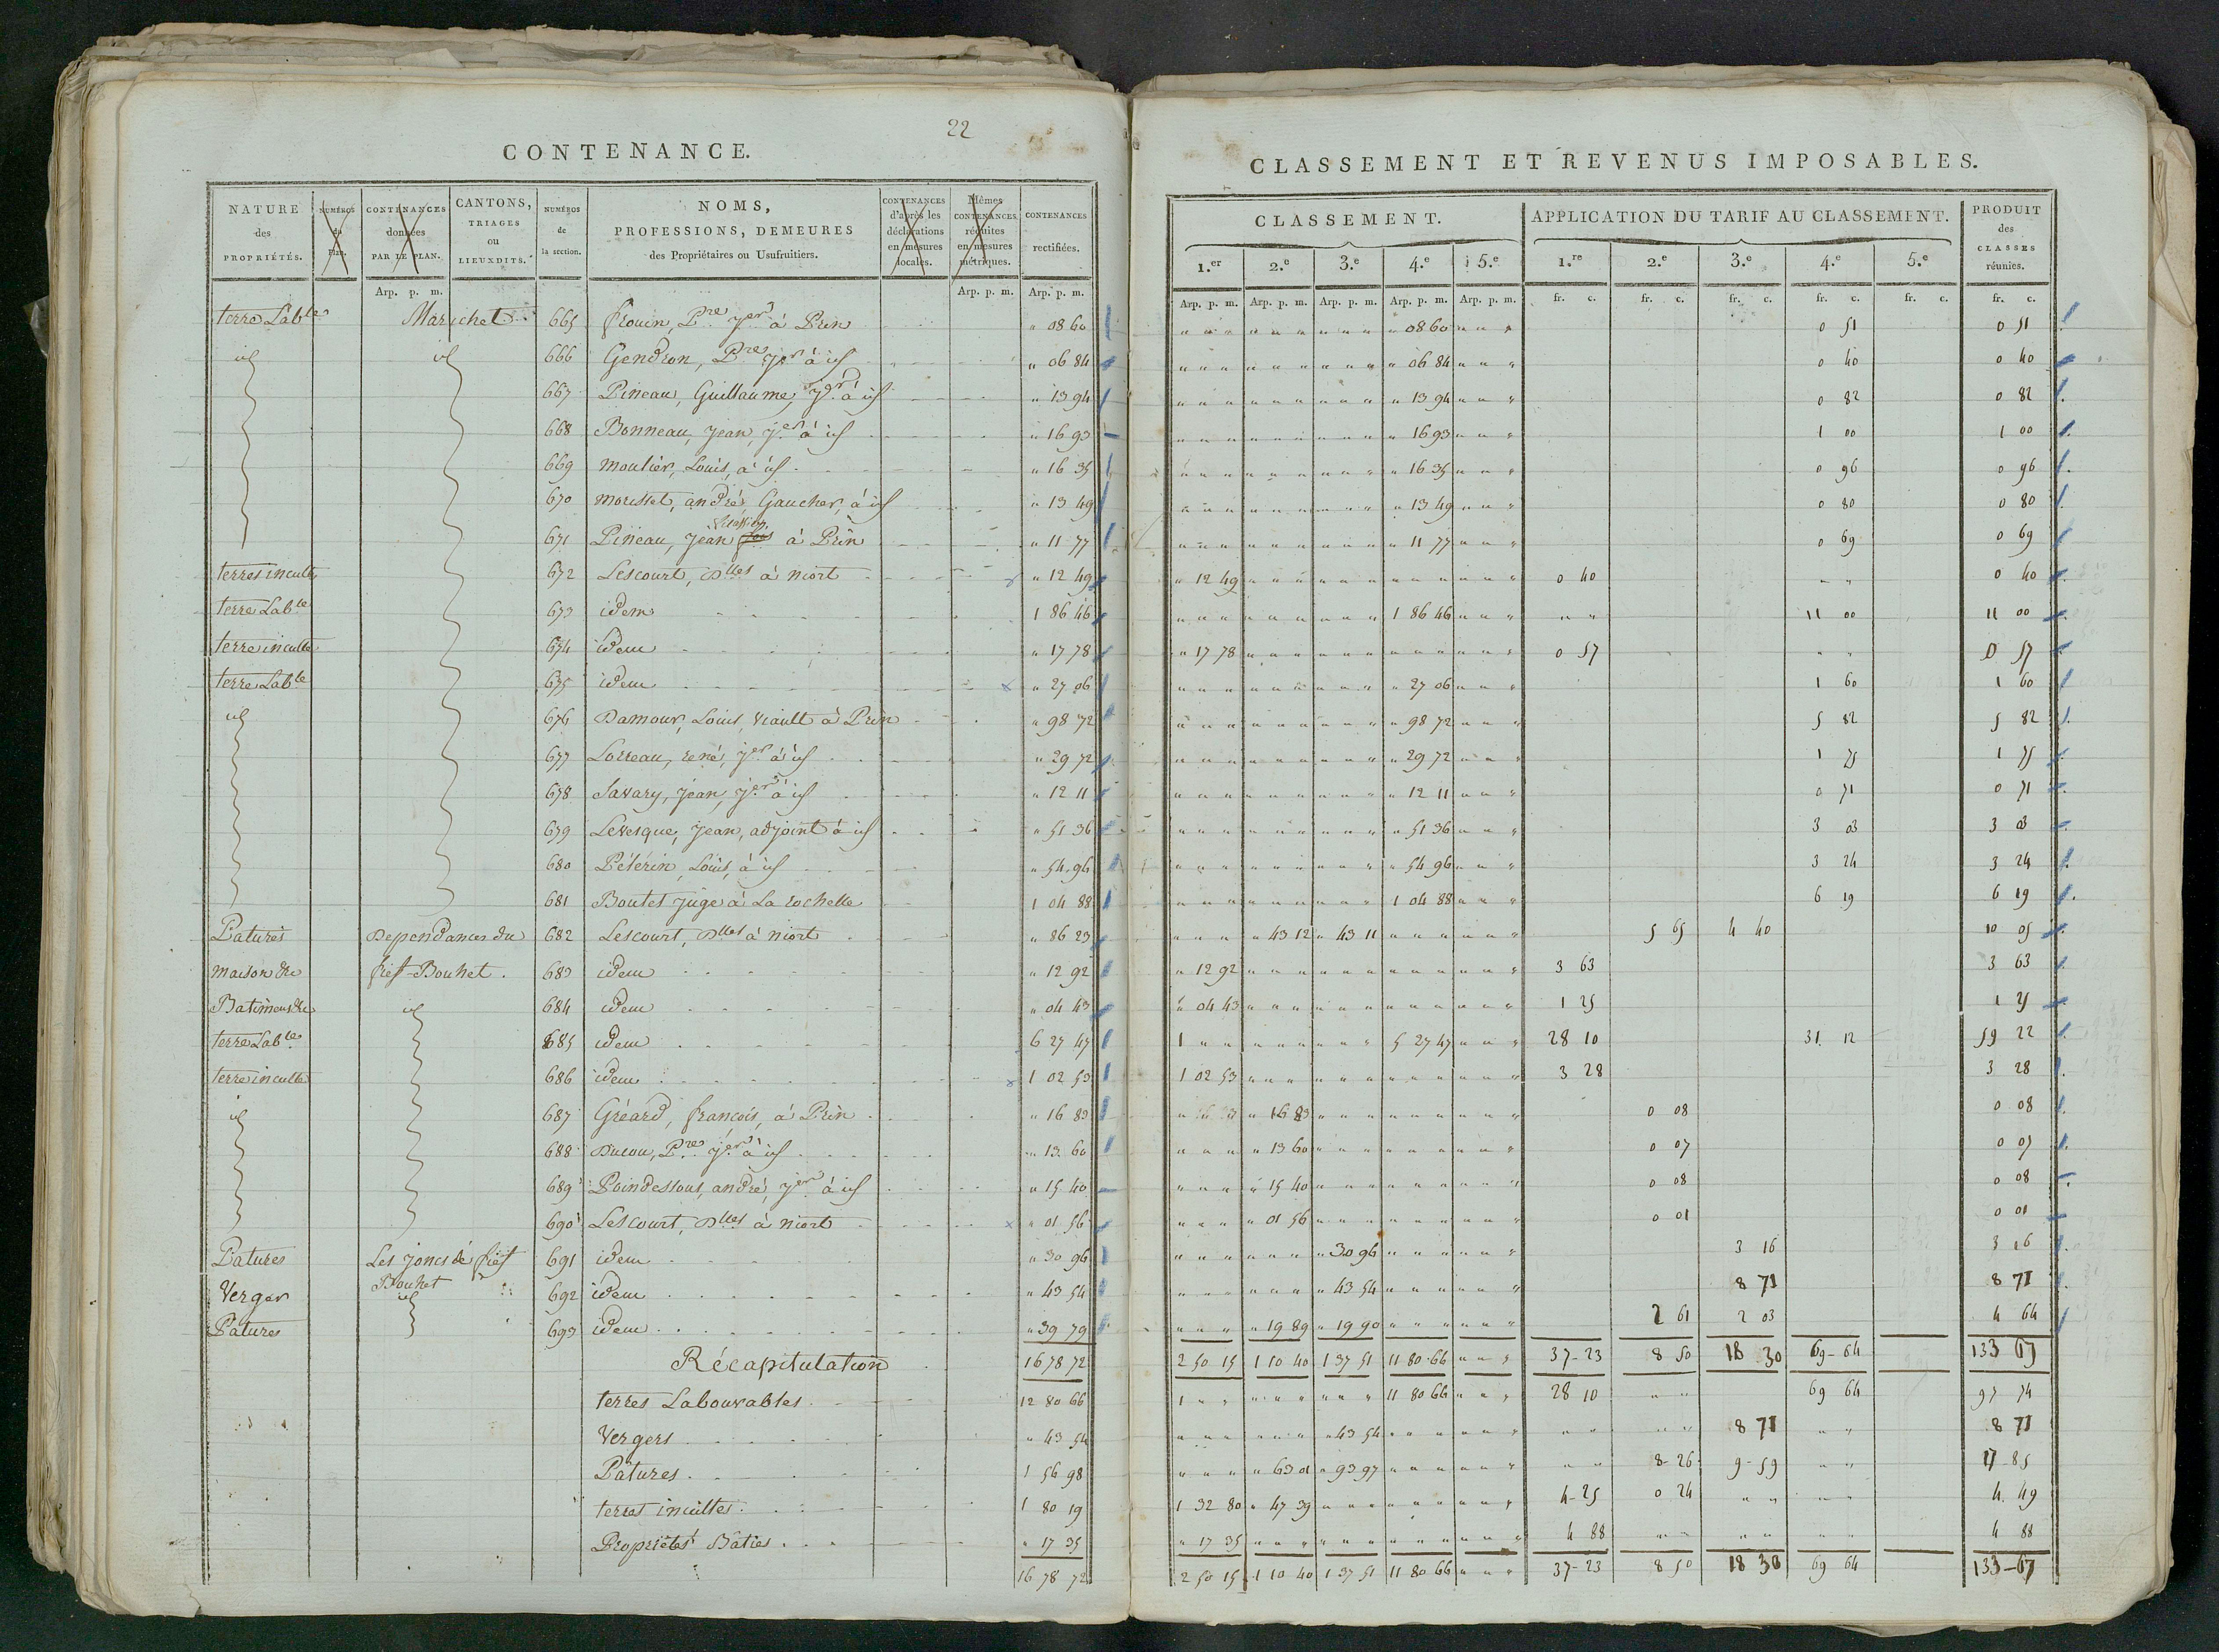 22
CONTENANCE.
NATURE des PROPRIÉTÉS. NUMÉROS du Plan. CONTENANCES données PAR LE PLAN. CANTONS, TRIAGES ou LIEUXDITS. NUMÉROS de la section. NOMS, PROFESSIONS, DEMEURES des Propriétaires ou Usufruitiers. CONTENANCES d'après les déclarations en mesures locales. Mêmes CONTENANCES réduites en mesures métriques. CONTENANCES rectifiées.
Arp. p. m. Arp. p. m. Arp. p. m.
terre Lable Marichet 665 frouin, Pre jer à Prin " 08 60
id id 666 Gendron, Pre jer à id " 06 84
667 Pineau, Guillaume, jer à id " 13 94
668 Bonneau, jean, jer à id " 16 93
669 moulier, Louis, à id " 16 35
670 morisset, andré, Gaucher, à id " 13 49
671 Pineau, jean à Prin " 11 77
terres incultes 672 Lescourt, Dlles à niort " 12 49
terre Lable 673 idem 1 86 46
terre inculte 674 idem " 17 78
terre Lable 675 idem " 27 06
id 676 Damour, Louis, viault à Prin " 98 72
677 Lorreau, rené, jer à id " 29 72
678 Savary, jean, jer à id " 12 11
679 Levesque, jean, adjoint à id " 51 36
680 Pélérin, Louis, à id " 54 96
681 Boutet juge à La rochelle 1 04 88
Patures Dependances du 682 Lescourt, Dlles à niort " 86 23
maison &c fief-Bouhet. 683 idem " 12 92
Batimens &c id 684 idem " 04 43
terre Lable 685 idem 6 27 47
terre inculte 686 idem 1 02 53
id 687 Gréard, françois, à Prin " 16 83
688 Ducou, Pre jer à id " 13 60
689 Poindessous, andré, jer à id " 15 40
690 Lescourt, Dlles à niort " 01 56
Patures Les joncs de fief 691 idem " 30 96
Bouhet
Verger id 692 idem " 43 54
Patures 693 idem " 39 79
Récapitulation 16 78 72
terres Labourables 12 80 66
Vergers " 43 54
Patures 1 56 98
terres incultes 1 80 19
Propriétés Bâties " 17 35
16 78 72
CLASSEMENT ET REVENUS IMPOSABLES.
CLASSEMENT. APPLICATION DU TARIF AU CLASSEMENT. PRODUIT des CLASSES réunies.
1.er 2.e 3.e 4.e 5.e 1.re 2.e 3.e 4.e 5.e
Arp. p. m. Arp. p. m. Arp. p. m. Arp. p. m. Arp. p. m. fr. c. fr. c. fr. c. fr. c. fr. c. fr. c.
" 08 60 0 51 0 51
" 06 84 0 40 0 40
" 13 94 0 82 0 82
" 16 93 1 00 1 00
" 16 35 0 96 0 96
" 13 49 0 80 0 80
" 11 77 0 69 0 69
" 12 49 0 40 0 40
1 86 46 11 00 11 00
" 17 78 0 57 0 57
" 27 06 1 60 1 60
" 98 72 5 82 5 82
" 29 72 1 75 1 75
" 12 11 0 71 0 71
" 51 36 3 03 3 03
" 54 96 3 24 3 24
1 04 88 6 19 6 19
" 43 12 " 43 11 5 65 4 40 10 05
" 12 92 3 63 3 63
" 04 43 1 25 1 25
1 " " 5 27 47 28 10 31 12 59 22
1 02 53 3 28 3 28
" 16 83 0 08 0 08
" 13 60 0 07 0 07
" 15 40 0 08 0 08
" 01 56 0 01 0 01
" 30 96 3 16 3 16
" 43 54 8 71 8 71
" 19 89 " 19 90 2 61 2 03 4 64
2 50 15 1 10 40 1 37 51 11 80 66 " " " 37-23 8 50 18 30 69-64 133 67
1 " " 11 80 66 28 10 69 64 97 74
" 43 54 8 71 8 71
" 63 01 " 93 97 8-26 9-59 17-85
1 32 80 " 47 39 4-25 0 24 4. 49
" 17 35 4 88 4 88
2 50 15 1 10 40 1 37 51 11 80 66 " " " 37-23 8 50 18 30 69 64 133-67